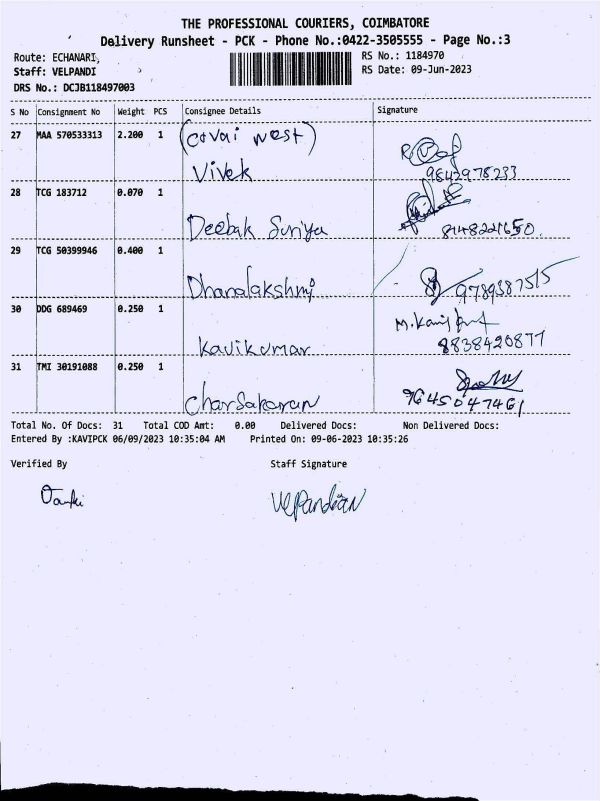 THE PROFESSIONAL COURIERS, COIMBATORE
Delivery Runsheet - PCK - Phone No.:0422-3505555 - Page No.:3
Route: ECHANARI, RS No.: 1184970
Staff: VELPANDI RS Date: 09-Jun-2023
DRS No.: DCJB118497003
S No Consignment No Weight PCS Consignee Details Signature
27 MAA 570533313 2.200 1 (covai west)
Vivek 9842978233
28 TCG 183712 0.070 1
Deebak Suriya 8148221650.
29 TCG 50399946 0.400 1
Dhanalakshmi 9789387515
30 DDG 689469 0.250 1
Kavikumar 8838420877
31 TMI 30191088 0.250 1
9645047461
Total No. Of Docs: 31 Total COD Amt: 0.00 Delivered Docs: Non Delivered Docs:
Entered By :KAVIPCK 06/09/2023 10:35:04 AM Printed On: 09-06-2023 10:35:26
Verified By Staff Signature
Velpandian